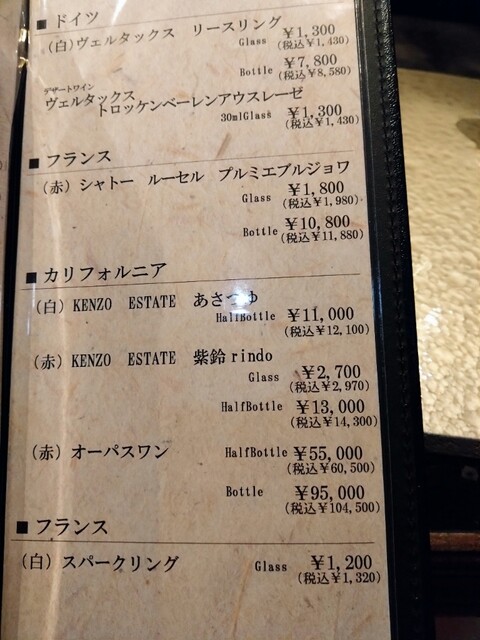 ■ドイツ
（白）ヴェルタックス　リースリング
Glass ￥1,300
（税込￥1,430）
Bottle ￥7,800
（税込￥8,580）
デザートワイン
ヴェルタックス
トロッケンベーレンアウスレーゼ
30mlGlass ￥1,300
（税込￥1,430）
■フランス
（赤）シャトー　ルーセル　プルミエブルジョワ
Glass ￥1,800
（税込￥1,980）
Bottle ￥10,800
（税込￥11,880）
■カリフォルニア
（白）KENZO　ESTATE　あさつゆ
HalfBottle ￥11,000
（税込￥12,100）
（赤）KENZO　ESTATE　紫鈴rindo
Glass ￥2,700
（税込￥2,970）
HalfBottle ￥13,000
（税込￥14,300）
（赤）オーパスワン HalfBottle ￥55,000
（税込￥60,500）
Bottle ￥95,000
（税込￥104,500）
■フランス
（白）スパークリング Glass ￥1,200
（税込￥1,320）